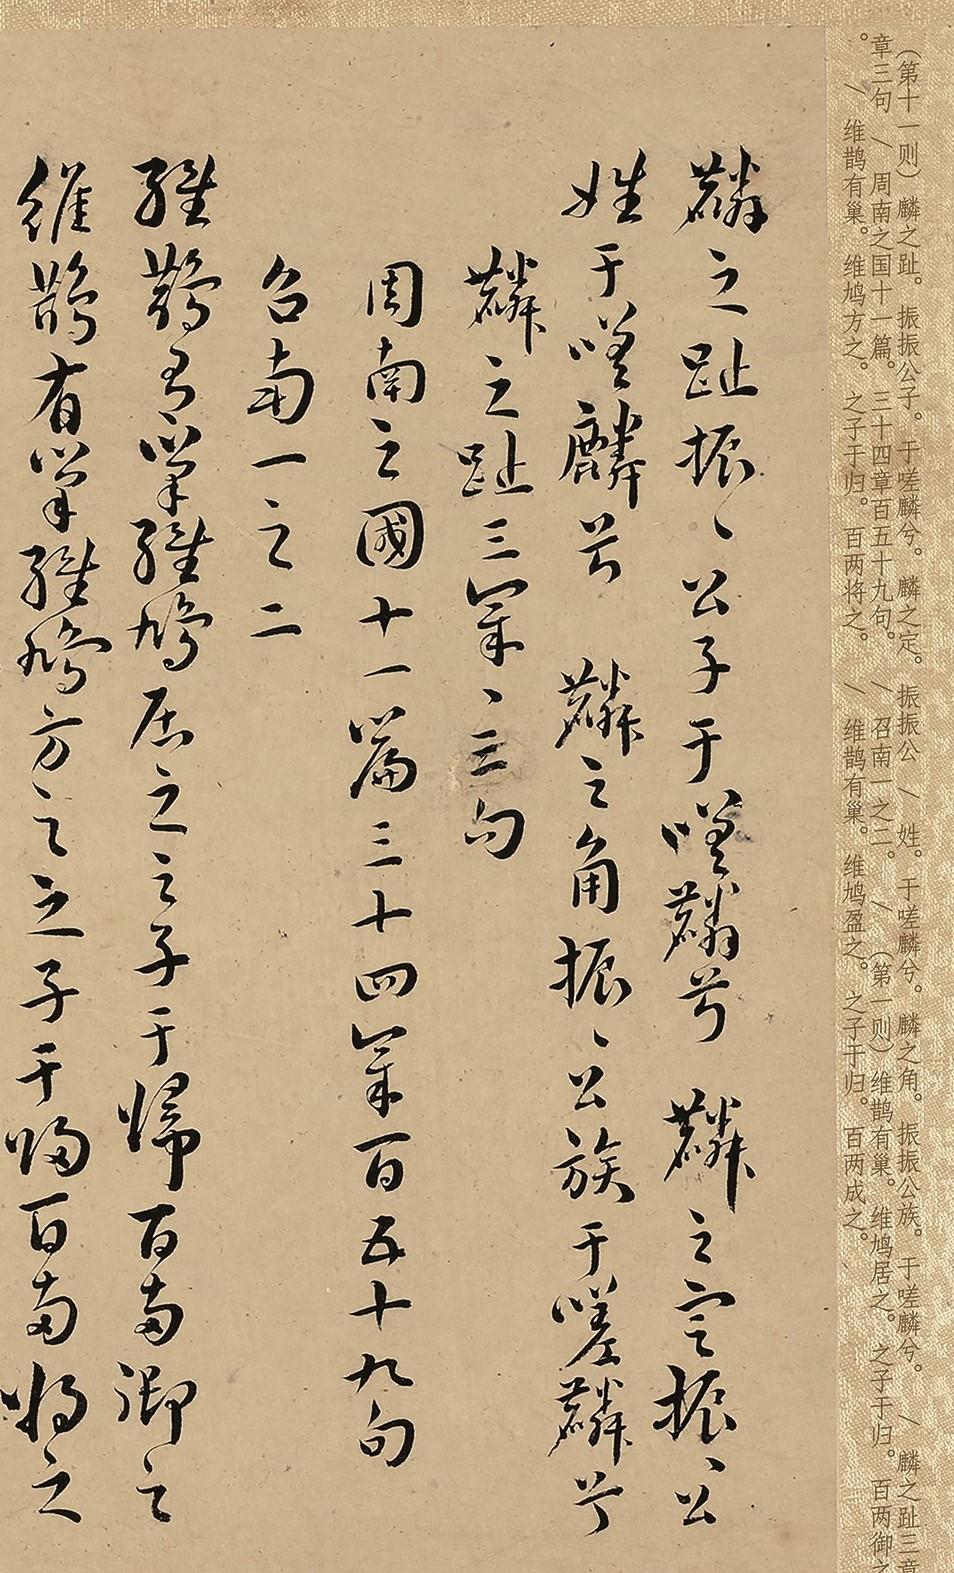 （第十一则）麟之趾。振振公子。于嗟麟兮。麟之定。振振公 / 姓。于嗟麟兮。麟之角。振振公族。于嗟麟兮。 / 麟之趾三章
章三句 / 周南之国十一篇。三十四章百五十九句。 / 召南一之二。 / （第一则）维鹊有巢。维鸠居之。之子于归。百两御之
。 / 维鹊有巢。维鸠方之。之子于归。百两将之。 / 维鹊有巢。维鸠盈之。之子于归。百两成之。
麟之趾振〻公子于嗟麟兮 麟之定振〻公
姓于嗟麟兮 麟之角振〻公族于嗟麟兮
麟之趾三章〻三句
周南之國十一篇三十四章百五十九句
召南一之二
維鵲有巢維鳩居之之子于歸百兩御之
維鵲有巢維鳩方之之子于歸百兩將之